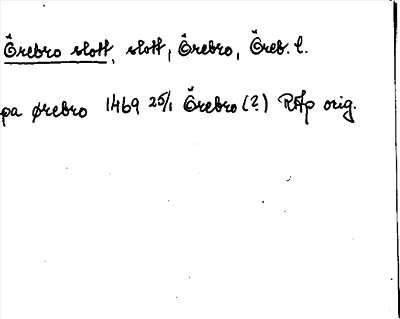 Örebro slott, slott, Örebro, Öreb. l.
pa ørebro 1469 25/1 Örebro (?) RAp orig.